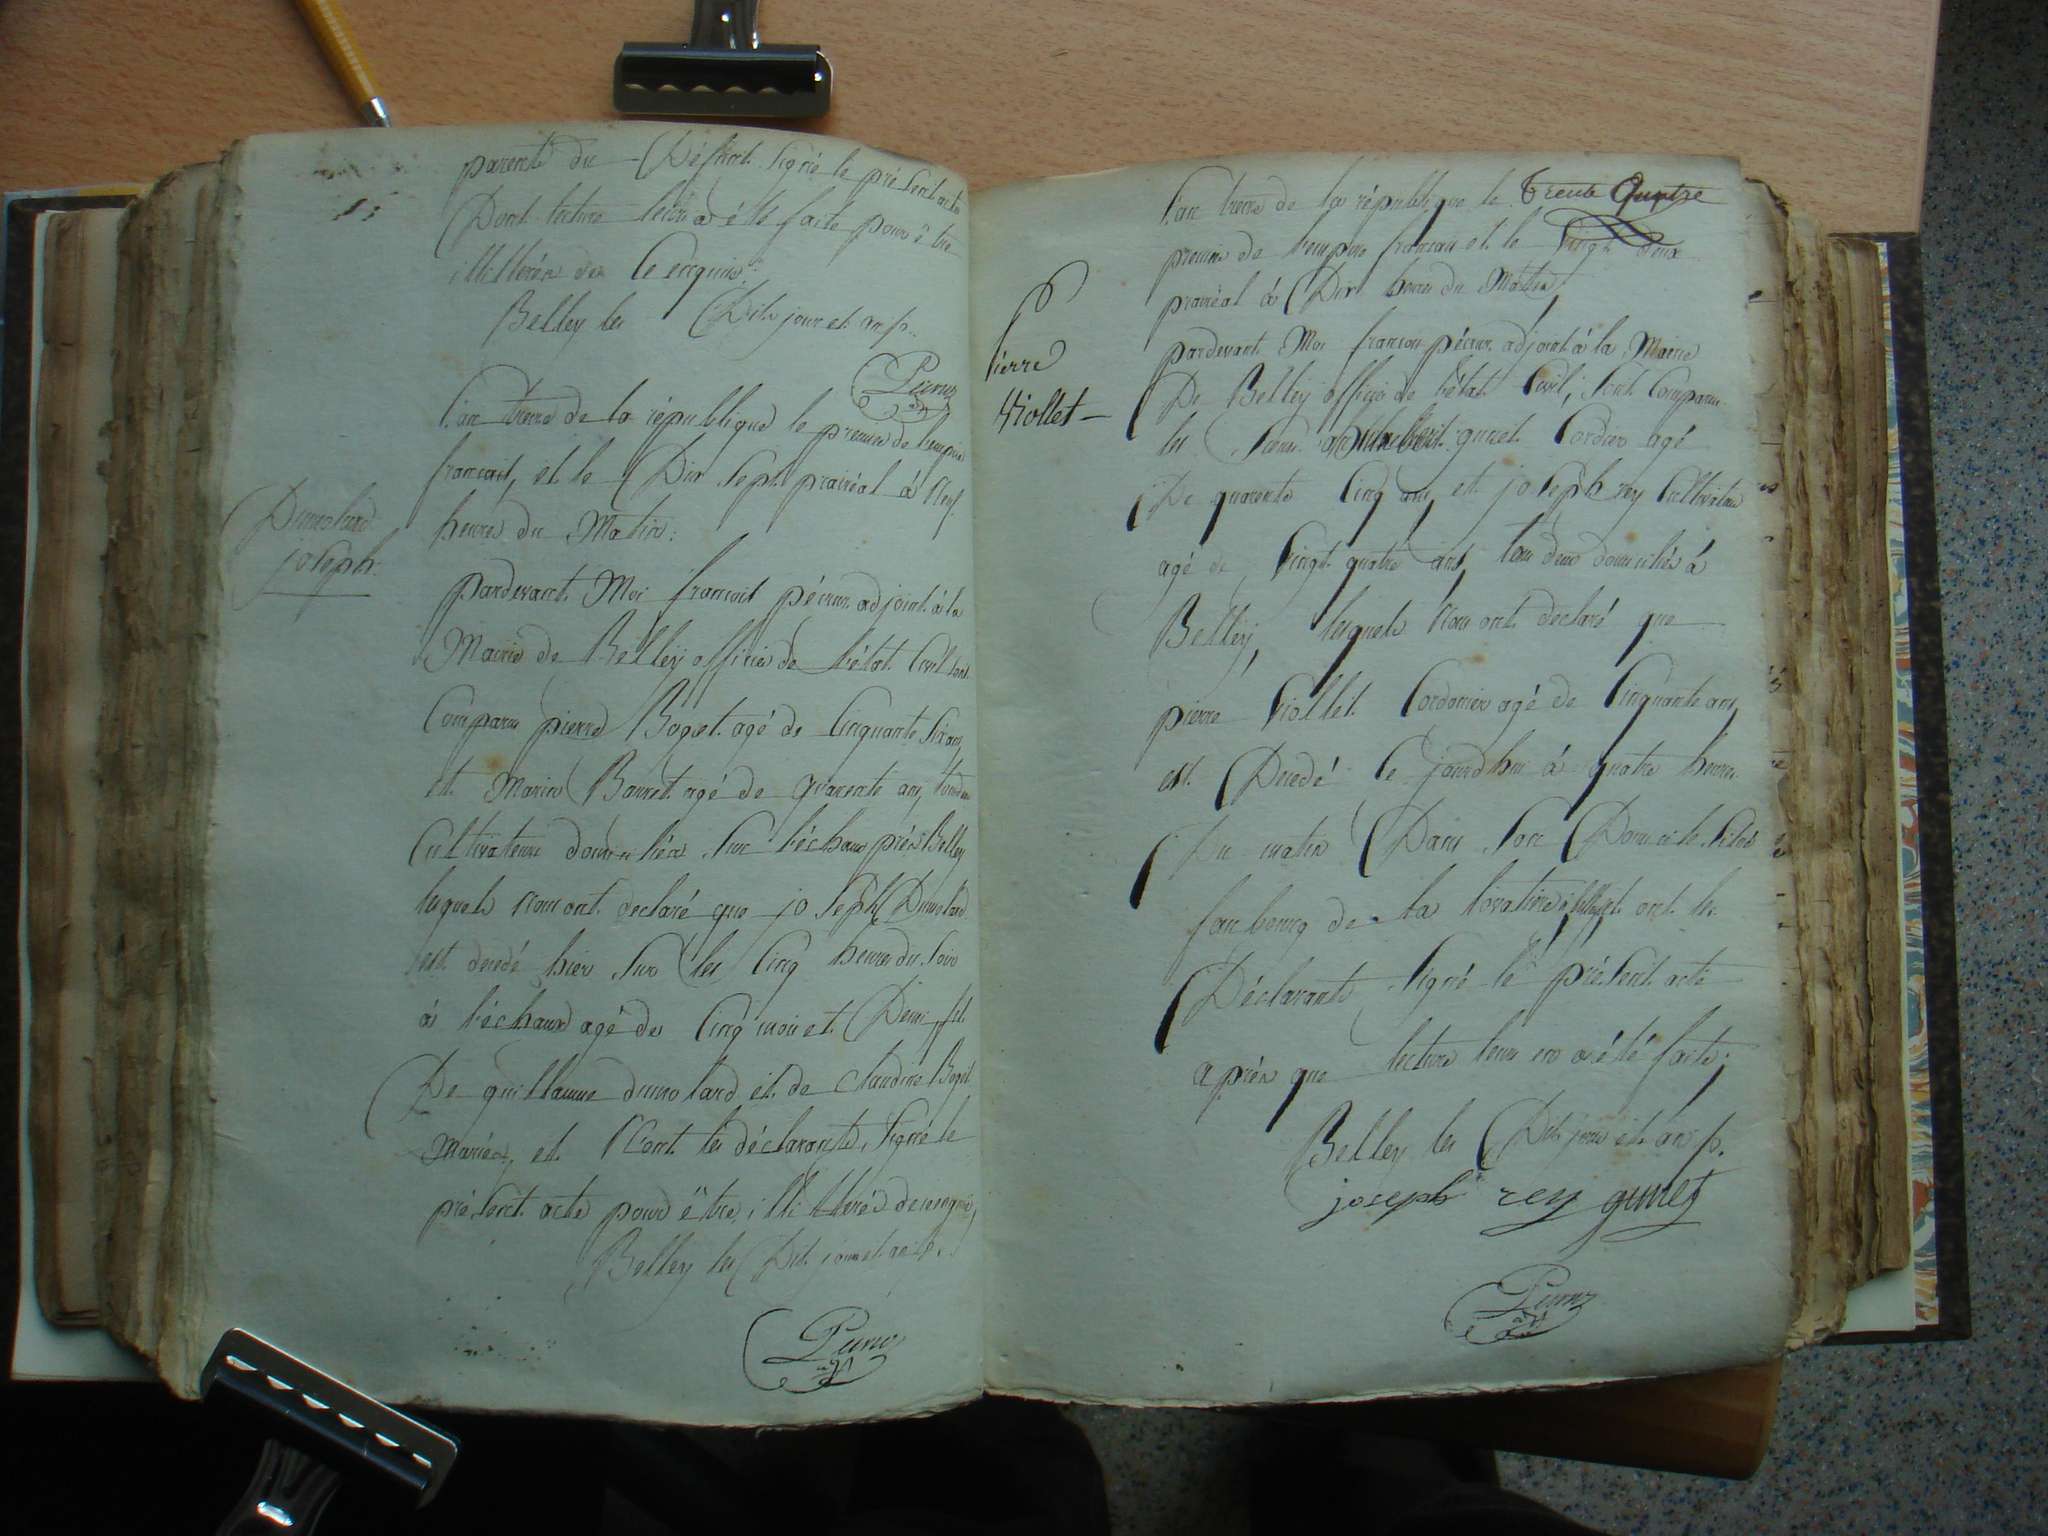 parents du Défunt signé le présent acte
Dont lecture leur a été faite pour être
illitterés de ce enquis.
Belley les Dits jour et an p.
Pécruz
adj
l'an treize de la république le premier de l'empire
francais, et le Dix sept prairéal à Neuf
heures du Matin:
Dumolard
joseph.
pardevant Moi francois pécruz adjoint à la
Mairie de Belleÿ officier de l'état Civil sont
Comparu pierre Boget agé de Cinquante six ans,
et Marin Barret agé de quarente ans, tous deux
Cultivateurs domiciliés sur l'échaux près Belley
lesquels Nous ont declaré que joseph Dumolard
est decedé hier sur les Cinq heures du soir
à l'échaux agé de Cinq mois et Demi, fils
De guillaume dumolard et de Claudine Boget
Mariés, et N'ont les déclarants signé le
présent acte pour être illitterés de ce enquis,
Belley les Dits jour et an p.
Pécruz
adj
Trente Quatre
l'an treize de la république le
premier de l'empire francais et le vingt deux
prairéal à Dix heures du Matin
Pierre
Viollet
pardevant Moi francois pécruz adjoint à la Mairie
De Belleÿ officier de l'état Civil, sont Comparu
les sieurs gunet Cordier agé
De quarente Cinq ans, et joseph rey Cultivateur
agé de vingt quatre ans, tous deux domiciliés à
Belleÿ, lesquels Nous ont declaré que
pierre Viollet Cordonier agé de Cinquante ans,
est Decedé Ce jourdhui à quatre heures
Du matin Dans son Domicile situé
faubourg de la et ont les
Déclarants signé le présent acte
après que lecture leur en a été faite;
Belley les Dits jour et an p.
joseph rey gunet
Pécruz
adj